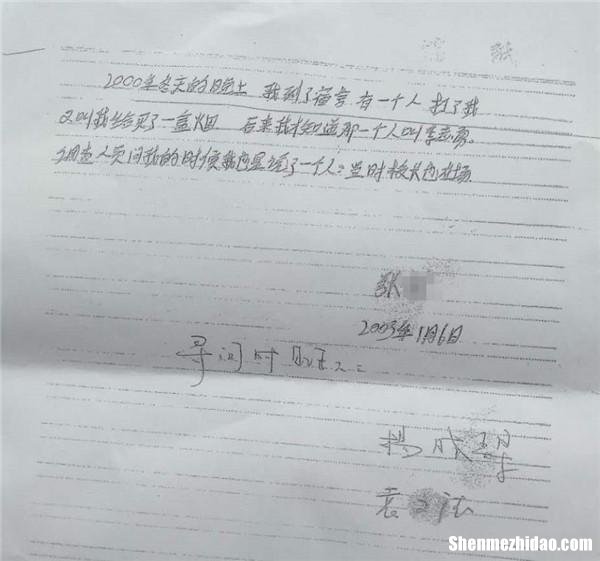 2000年冬天的晚上 我到了宿舍 有一个人 打了我
又叫我给买了一盒烟 后来我才知道那一个人叫李志勇。
调查人员问我的时候我也是说了一个人：当时校长也在场
张
2003年1月6日
寻问时
杨成
袁 法
Shenmezhidao.com